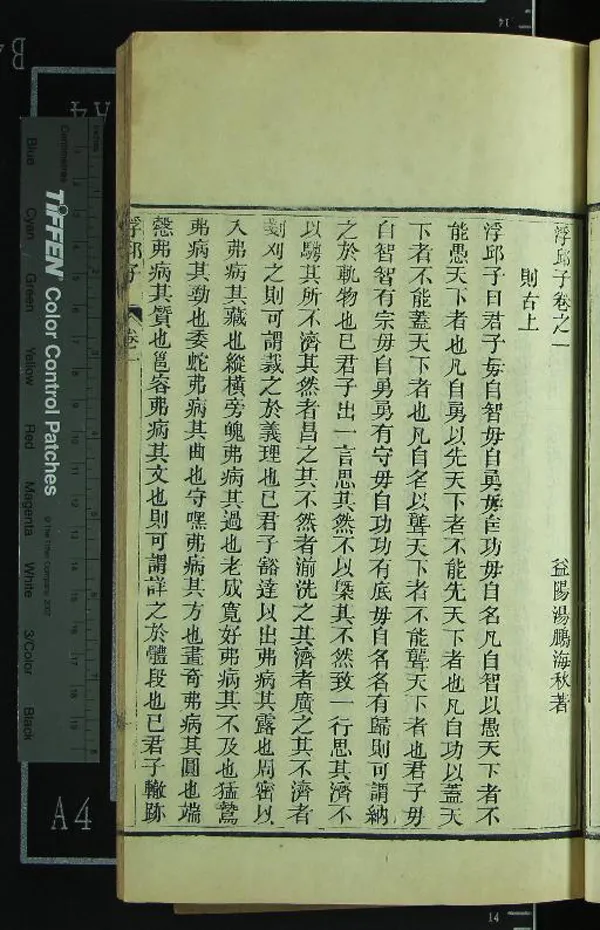 浮邱子卷之一
益陽湯鵬海秋著
則古上
浮邱子曰君子毋自智毋自勇毋自功毋自名凡自智以愚天下者不
能愚天下者也凡自勇以先天下者不能先天下者也凡自功以蓋天
下者不能蓋天下者也凡自名以聾天下者不能聾天下者也君子毋
自智智有宗毋自勇勇有守毋自功功有底毋自名名有歸則可謂納
之於軌物也已君子出一言思其然不以槩其不然致一行思其濟不
以騁其所不濟其然者昌之其不然者湔洗之其濟者廣之其不濟者
刈之則可謂裁之於義理也已君子豁達以出弗病其露也周密以
入弗病其藏也縱橫旁魄弗病其過也老成寬好弗病其不及也猛鷙
弗病其勁也委蛇弗病其曲也守嘿弗病其方也畫奇弗病其圓也端
愨弗病其質也邕容弗病其文也則可謂詳之於體段也已君子轍跡
浮邱子 卷一
TIFFEN Color Control Patches
© The Tiffen Company, 2007
Centimetres
Inches
Blue
Cyan
Green
Yellow
Red
Magenta
White
3/Color
Black
A4
A4
B
14
14